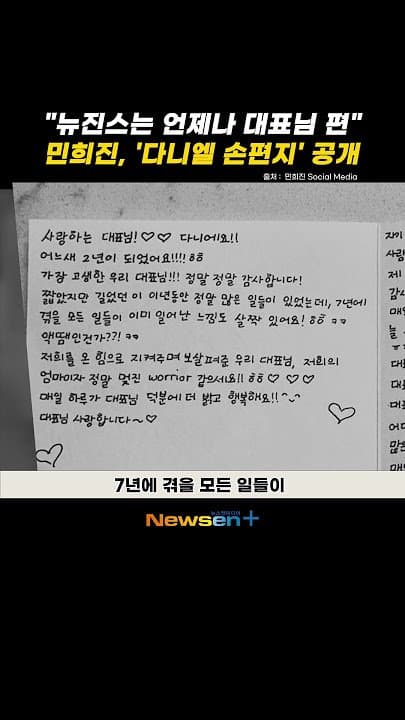 "뉴진스는 언제나 대표님 편"
민희진, '다니엘 손편지' 공개
출처 : 민희진 Social Media
사랑하는 대표님!♡♡ 다니에요!!
어느새 2년이 되었어요!!!! ㅎㅎ
가장 고생한 우리 대표님!!! 정말 정말 감사합니다!
짧았지만 길었던 이 이년동안 정말 많은 일들이 있었는데, 7년에
겪을 모든 일들이 이미 일어난 느낌도 살짝 있어요! ㅎㅎ ㅋㅋ
액땜인건가??! ㅋㅋ
저희를 온 힘으로 지켜주며 보살펴준 우리 대표님, 저희의
엄마이자 정말 멋진 worrior 같으세요!! ㅎㅎ ♡ ♡ ♡
매일 하루가 대표님 덕분에 더 밝고 행복해요!! ^~^
대표님 사랑합니다~♡
자기
사랑
제
감사
매일
늘
대표
대표
어디
많은
7년에 겪을 모든 일들이
뉴스엔미디어
Newsen+